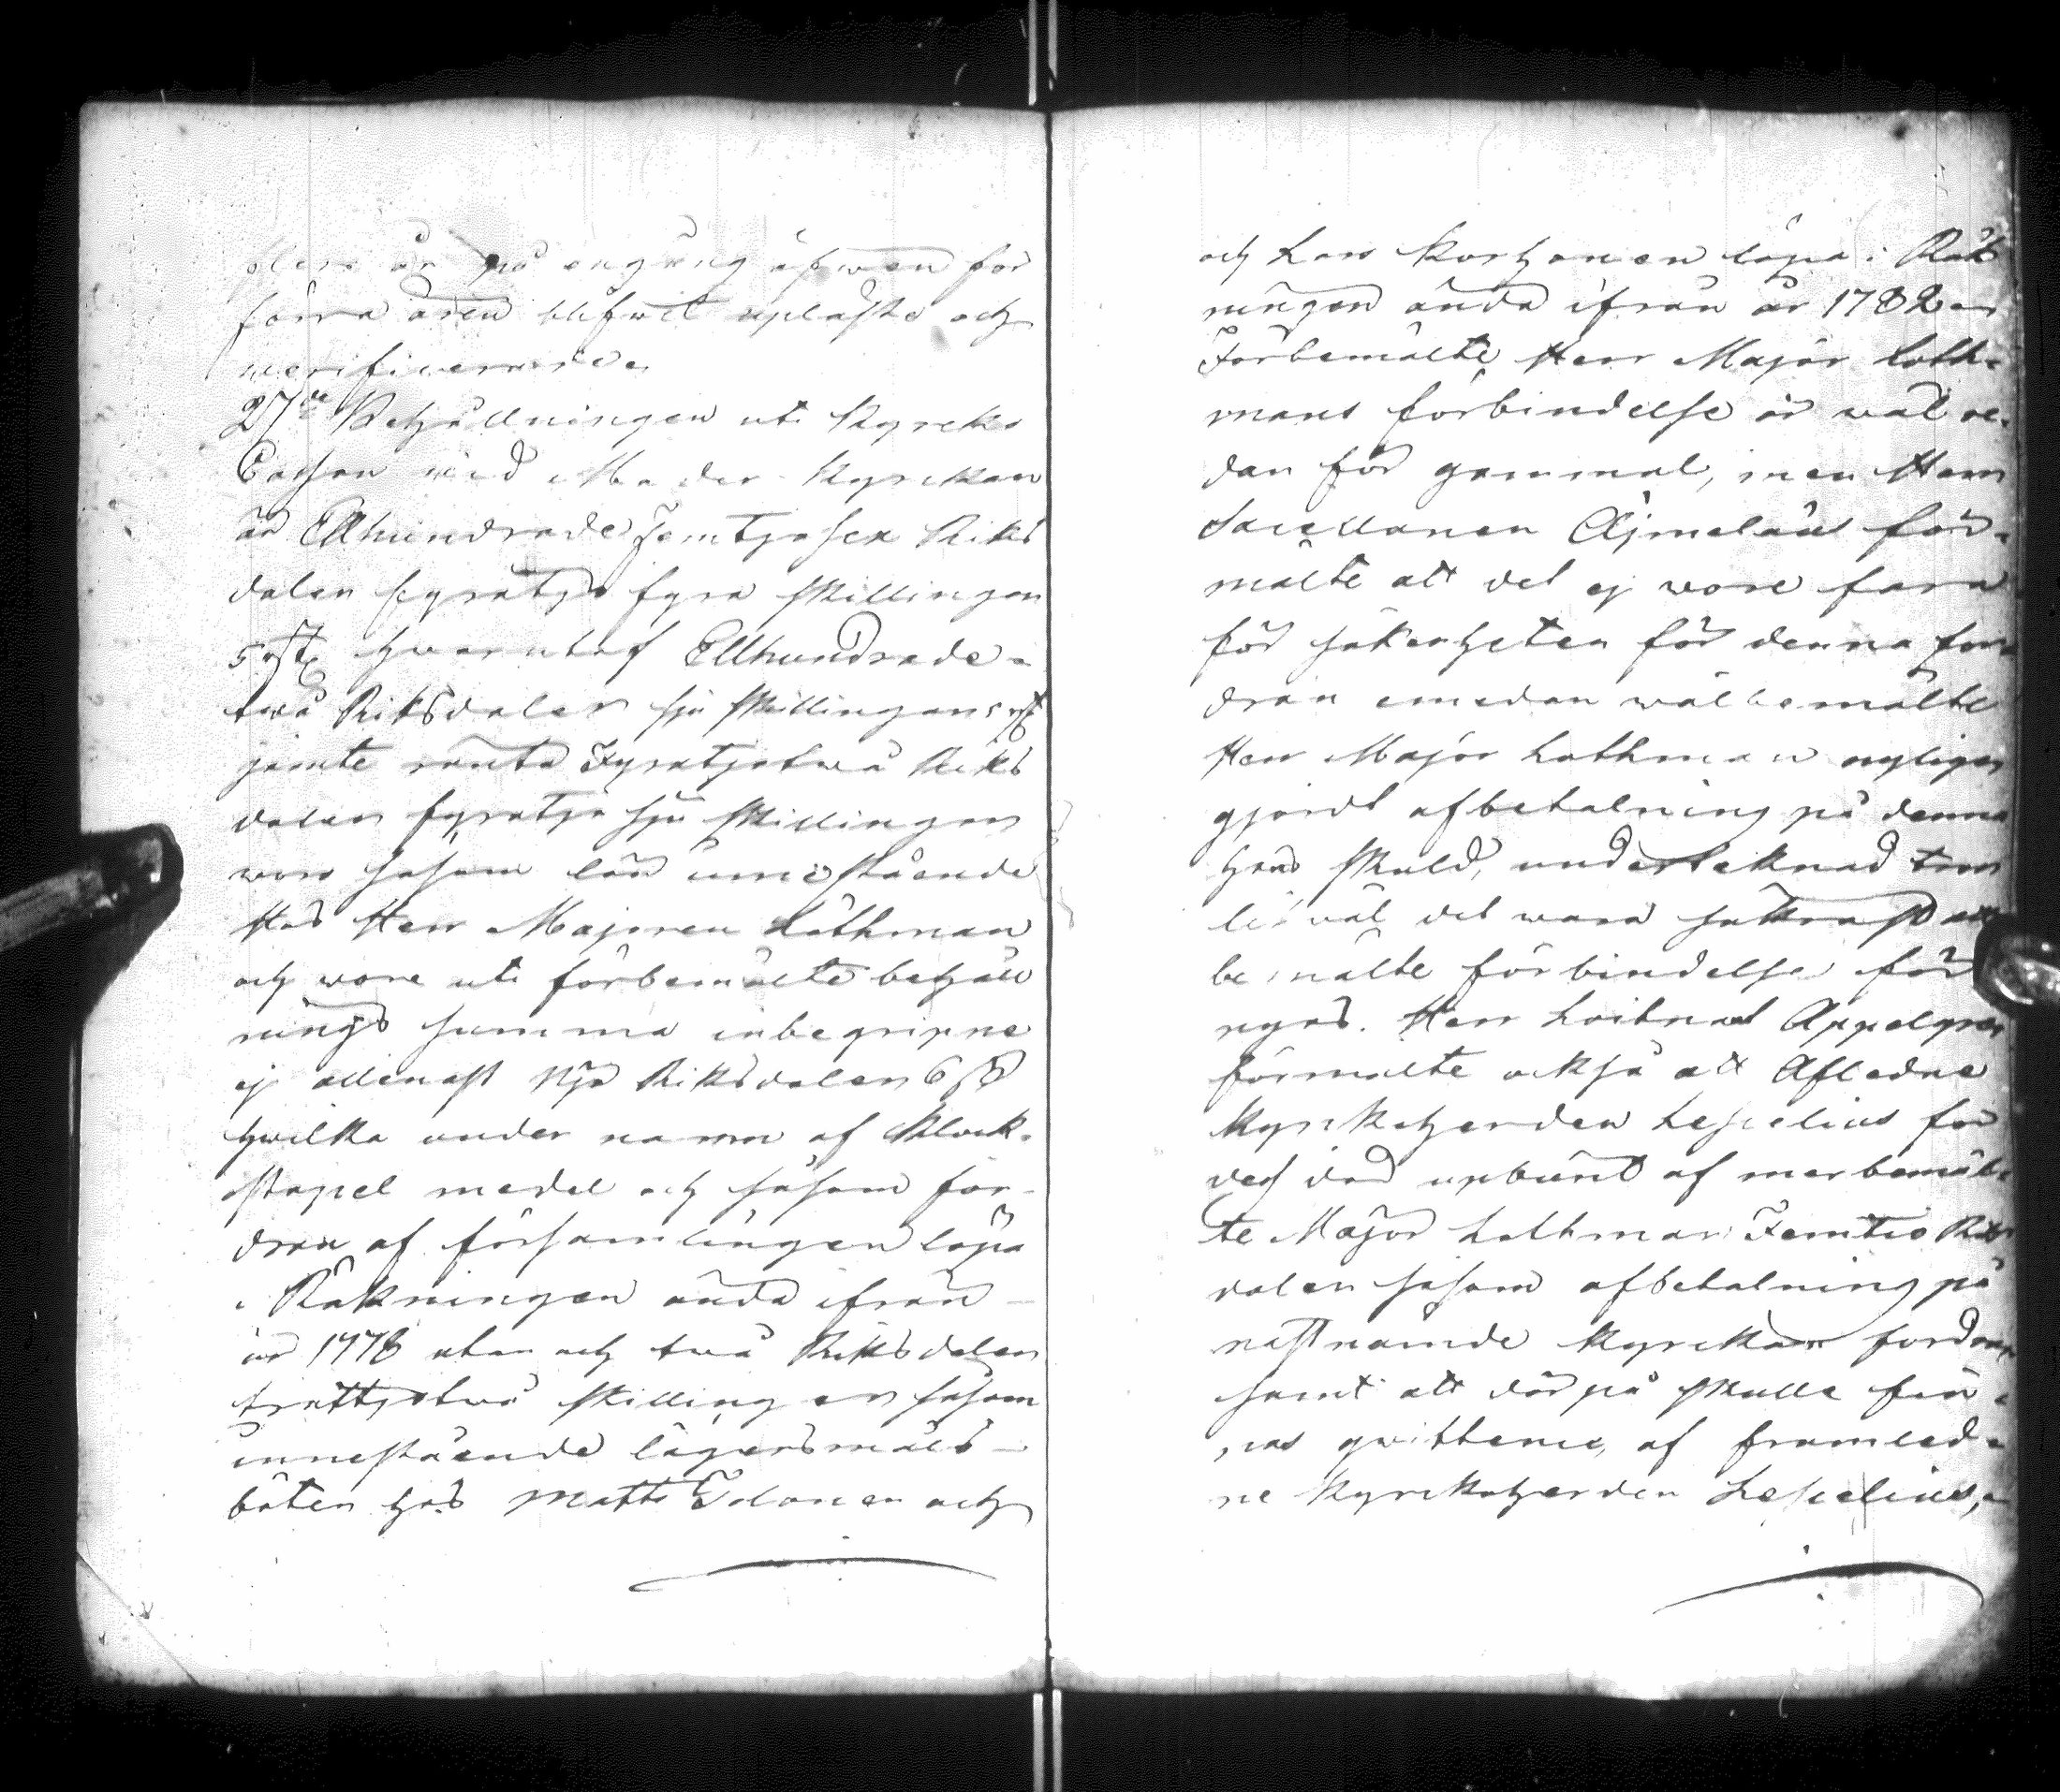 flere år på engång äfwen för
förra åren blifwit uplästa och
werificerade.
27de Behållningen uti Kyrko
Cassan wid Moder Kyrckan
är Etthundrade Femtjosex Riks
daler fyratjo fyra skillingar
5 rst. hwarutaf Etthundrade
twå Riksdaler sju skillingar 5 rst
jämte ränta Fyratjotwå Riks
daler fyratjo sju skillingar
wors såsom lån innestående
Hos Herr Majoren Lothman
och wore uti förbemälte behåll
nings summa inbegripne
ej allenast Nijo Riksdaler 6 ß
hwilka under namn af Klock-
stapel medel och såsom for-
dran af församlingen löpa
i Räkningen ända ifrån
år 1778 utan och twå Riksdaler
trettjotwå skillingar såsom
innestående lägersmåls-
böter hos Matts Tolonen och
och Lars Korhonen löpa i Räk
ningen ända ifrån år 1782.
Förbemälte Herr Major Loth-
mans förbindelse är wäl re-
dan för gammal, men Herr
Sacellanen Äjmelæus för-
mälte att det ej wore fara
för säkerheten för denna for
dran emedan wälbemälte
Herr Major Lothman nyligen
gjordt afbetalning på denna
hans skuld, undertecknad tror
lik wäl det wara säkrast att
bemälte förbindelse för
nyas. Herr Loitnant Appelgren
förmälte också att Afledne
Kyrkoherden Lesselius för
dess död upburit af merbemäl-
te Major Lothman Femtio Riks
daler såsom afbetalning på
nästnämde Kyrckans fordran
samt att där på skulle fin-
nas qwittence, af framled-
ne Kyrckoherden Lesselius,